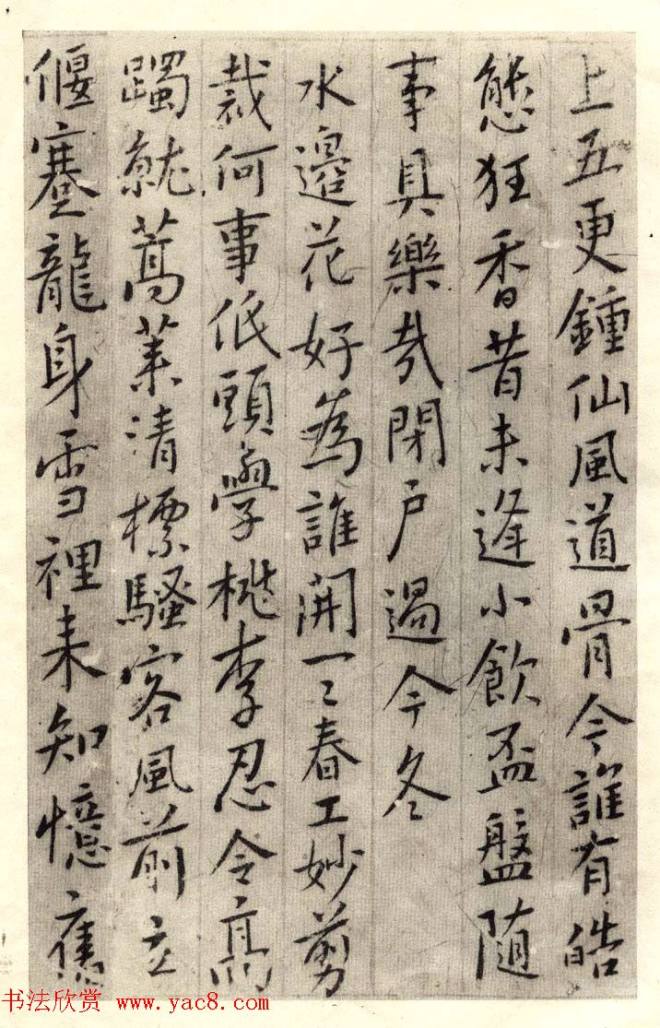 上五更鍾仙風道骨今誰有皓
態狂香昔未逢小飲盃盤随
事具樂哉閉戶過今冬
水邊花好為誰開一〻春工妙剪
裁何事低頭學桃李忍令高
躅就蒿萊清標騷客風前立
偃蹇龍身雪裡来知憶舊
书法欣赏 www.yac8.com